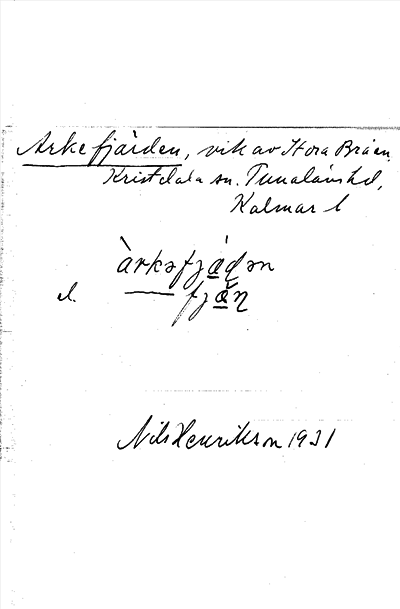 Arkefjärden, vik av Stora Bråen
Kristdala sn. Tunaläns hd,
Kalmar l
àrkəfjæ̀ɖən
el. —— fjæ̀ɳ
Nils Henrikson 1931